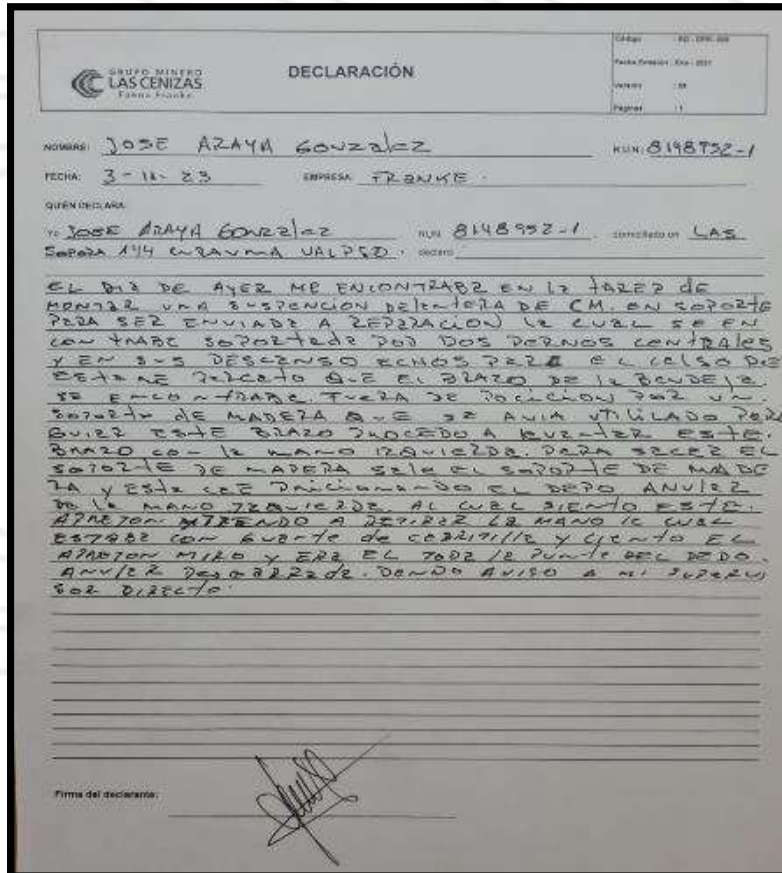 GRUPO MINERO
LAS CENIZAS
Faena Franke
DECLARACIÓN
Código
Fecha Emisión : Ene - 2021
Versión
Páginas : 1
NOMBRE: JOSE ARAYA GONZALEZ RUN: 8148952-1
FECHA: 3-11-23 EMPRESA: FRANKE.
QUIÉN DECLARA:
Yo JOSE ARAYA GONZALEZ RUN 8148952-1, domiciliado en LAS
144 CURAUMA VALPSO. declaro:
EL DIA DE AYER ME ENCONTRABA EN LA TAREA DE
MONTAR UNA SUSPENCIÓN DELANTERA DE CM. EN SOPORTE
PARA SER ENVIADA A REPARACION LA CUAL SE EN
CONTRABA SOPORTADA POR DOS PERNOS CENTRALES
Y EN SUS DESCANSO ECHOS PARA EL CASO DE
ESTA ME PERCATO QUE EL BRAZO DE LA BANDEJA
SE ENCONTRABA FUERA DE POCICION POR UN
SOPORTE DE MADERA QUE SE AVIA UTILILADO PARA
GUIAR ESTE BRAZO PROCEDO A LEVANTAR ESTE.
BRAZO CON LA MANO IZQUIERDA. PARA SACAR EL
SOPORTE DE MADERA SALE EL SOPORTE DE MADE
RA Y ESTA CAE PRICIONANDO EL DEDO ANULAR
DE LA MANO IZQUIERDA. AL CUAL SIENTO ESTE.
APRETON A RETIRAR LA MANO LA CUAL
ESTABA CON GUANTE DE CABRITILLA Y CIENTO EL
APRETON MIRO Y ERA EL LA PUNTA DEL DEDO
ANULAR DESGARRADA. DANDO AVISO A MI SUPERVI
SOR DIRECTO.
Firma del declarante: